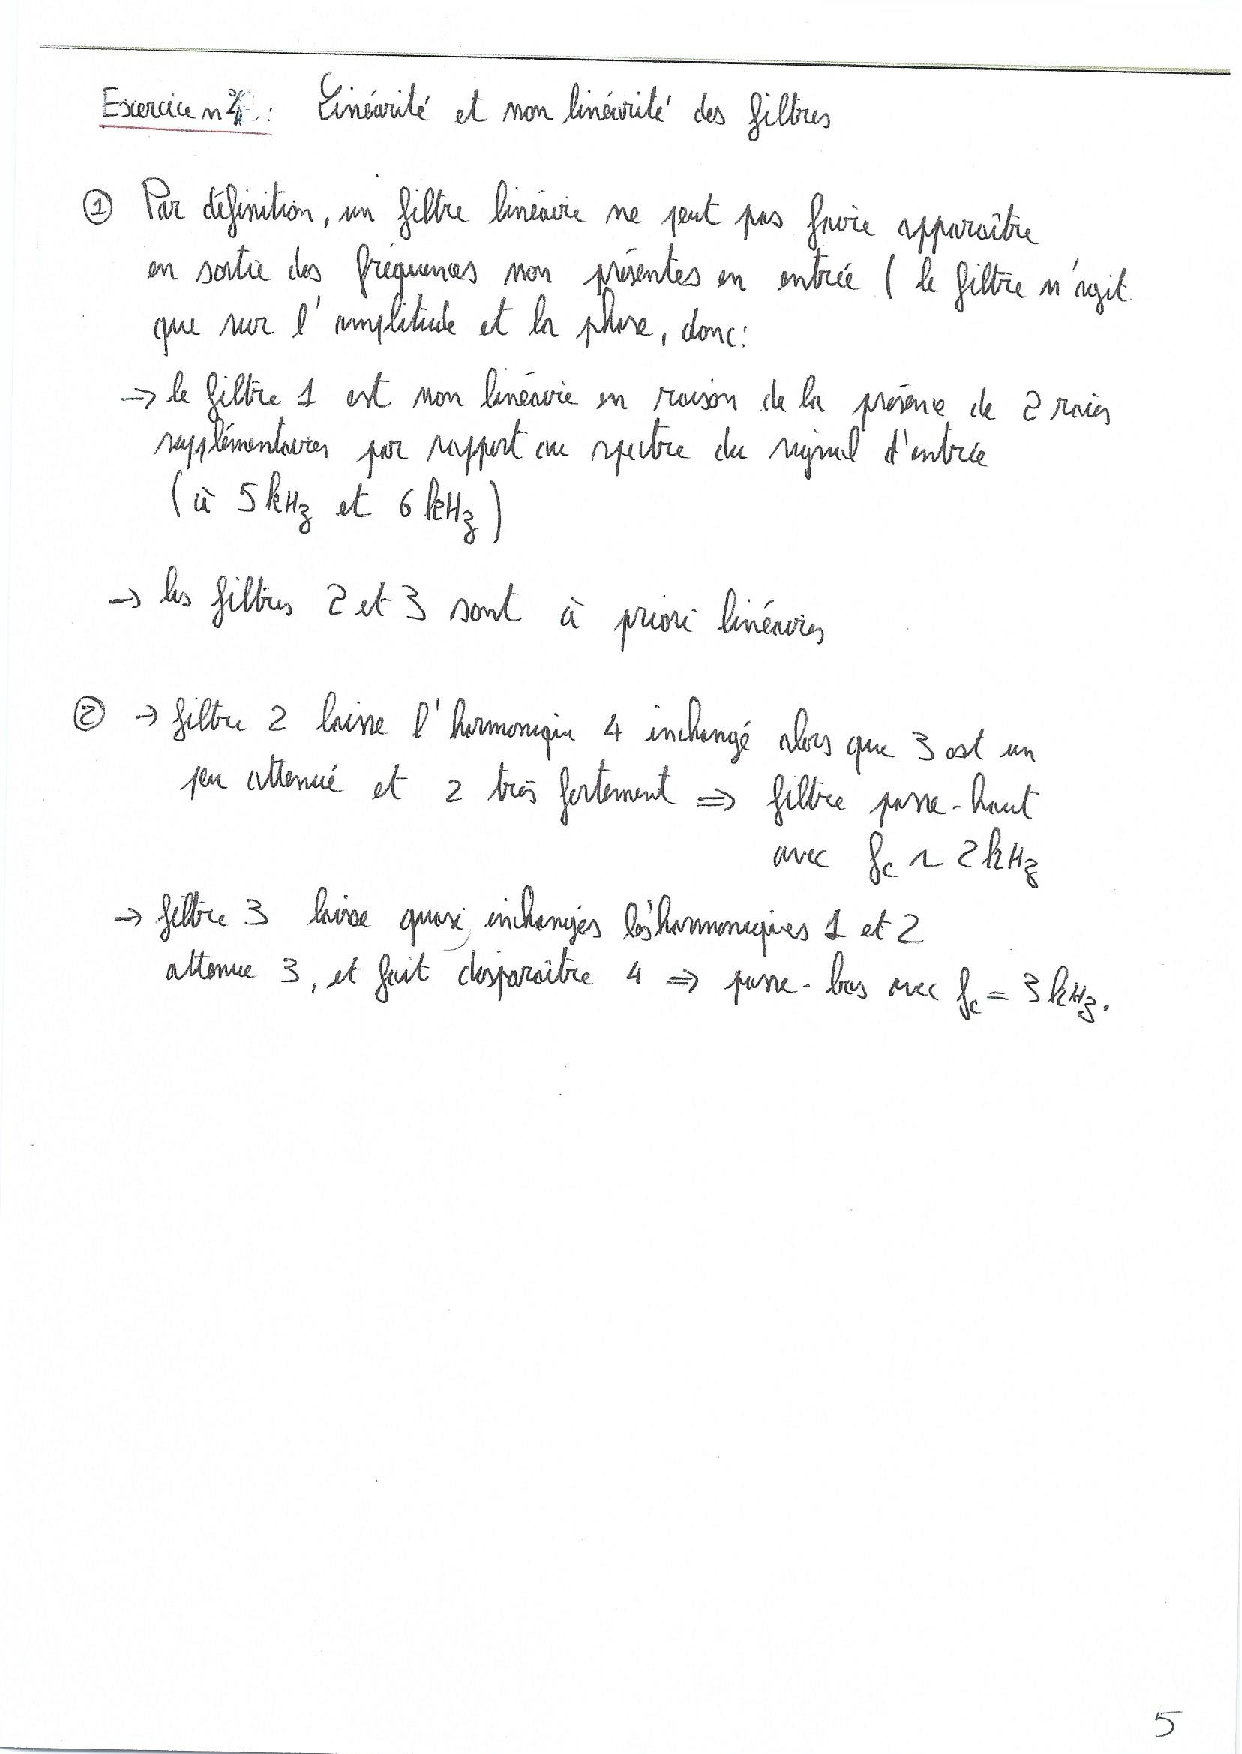 Exercice n°4 : Linéarité et non linéarité des filtres
① Par définition, un filtre linéaire ne peut pas faire apparaître
en sortie des fréquences non présentes en entrée ( le filtre n'agit
que sur l'amplitude et la phase, donc:
→ le filtre 1 est non linéaire en raison de la présence de 2 raies
supplémentaires par rapport au spectre du signal d'entrée
(à 5 kHz et 6 kHz)
→ les filtres 2 et 3 sont à priori linéaires
② → filtre 2 laisse l'harmonique 4 inchangé alors que 3 est un
peu attenué et 2 très fortement ⇒ filtre passe-haut
avec fc ~ 2 kHz
→ filtre 3 laisse quasi inchangés les harmoniques 1 et 2
attenue 3, et fait disparaître 4 ⇒ passe-bas avec fc = 3 kHz.
5